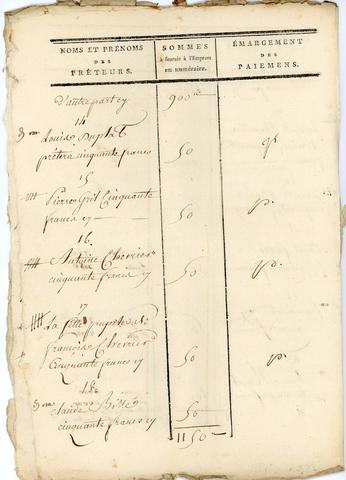 NOMS ET PRÉNOMS
DES
PRÊTEURS.
SOMMES
à fournir à l'Emprunt
en numéraire.
ÉMARGEMENT
DES
PAIEMENS.
d'autre part cy 900
14
Louis Duplat
prêtera cinquante francs 50
15
Pierre Gril Cinquante
francs cy 50 p.
16.
Antoine Chevrier
cinquante francs cy 50 p.
17
La fille
françoise Chevrier
Cinquante francs cy 50 p
18
Claude
cinquante francs cy 50
1150